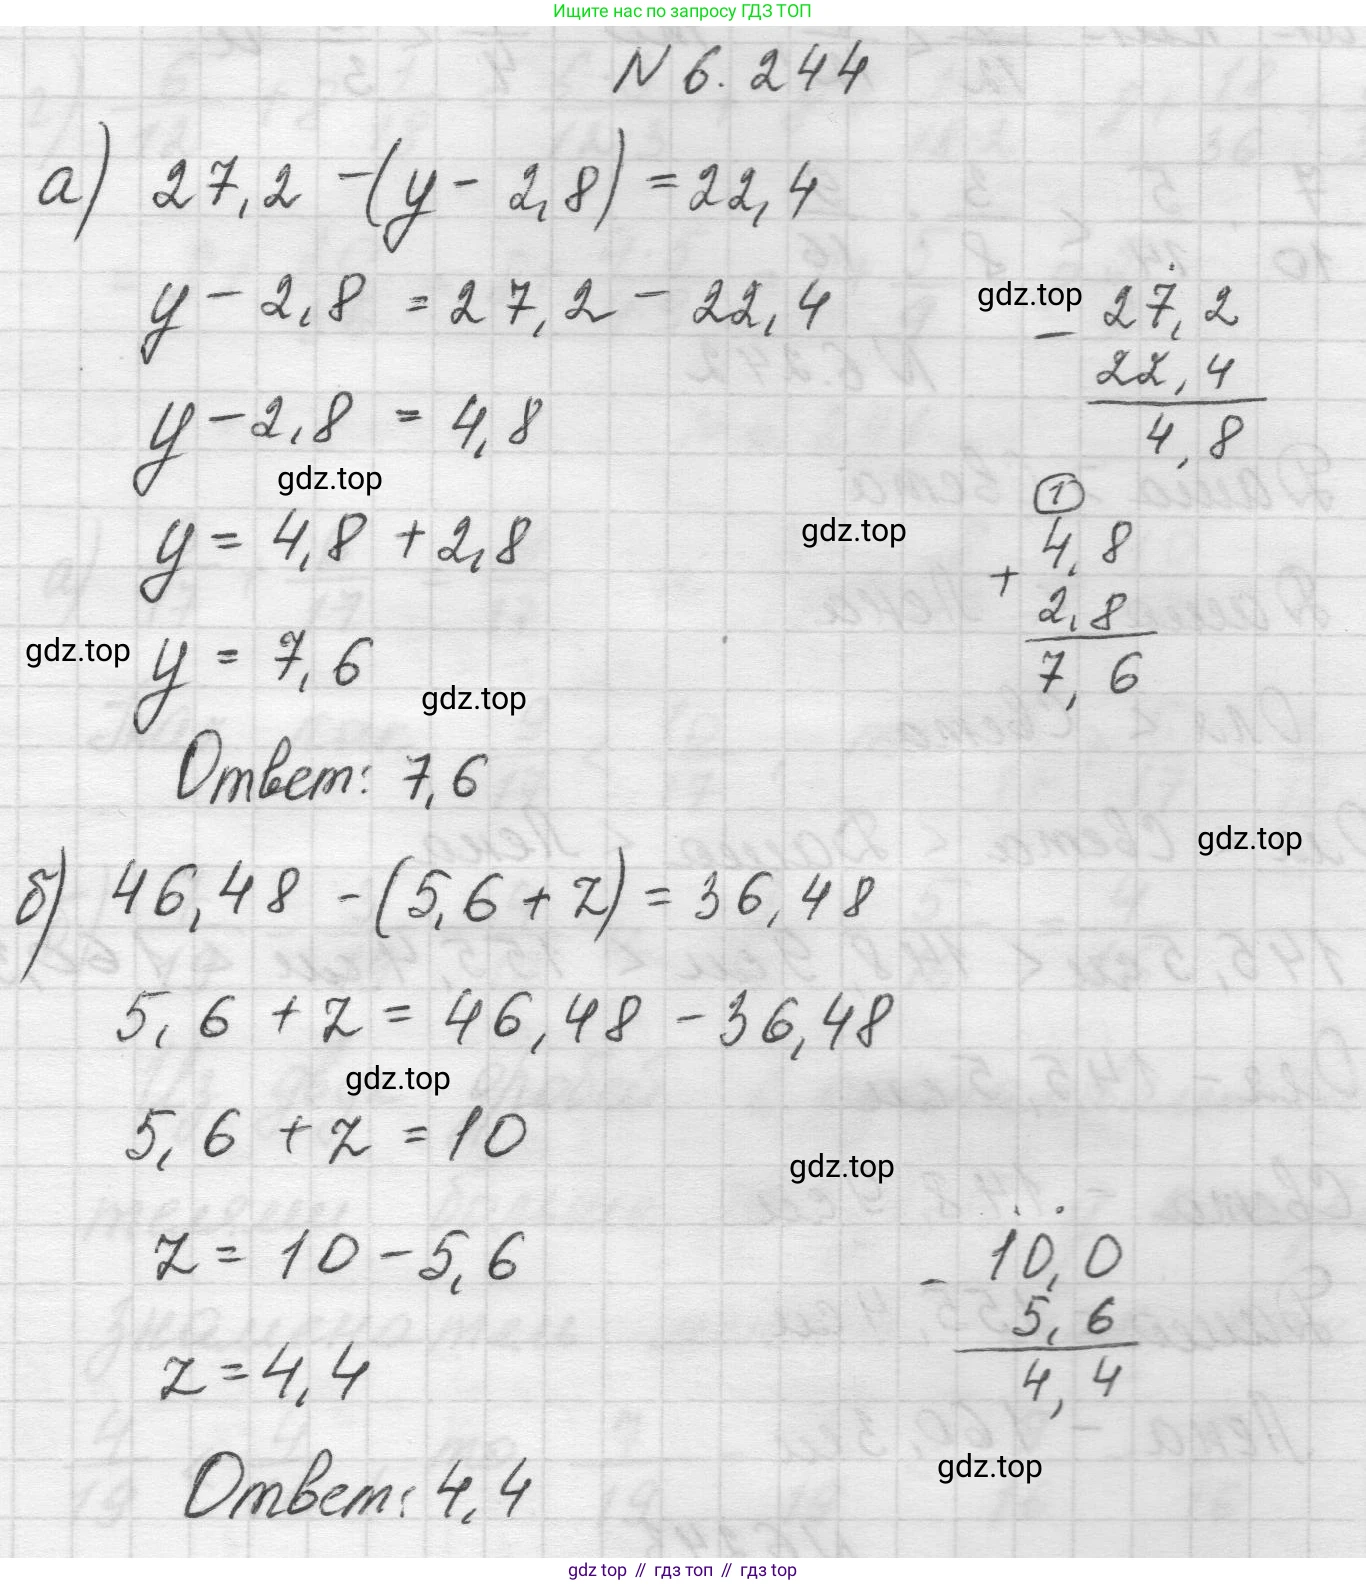 Ищите нас по запросу ГДЗ ТОП
N 6.244
а) 27,2 - (y - 2,8) = 22,4
y - 2,8 = 27,2 - 22,4
gdz.top
- 27,2
22,4
4,8
y - 2,8 = 4,8
gdz.top
gdz.top
1
+ 4,8
2,8
7,6
y = 4,8 + 2,8
gdz.top
y = 7,6
gdz.top
Ответ: 7,6
gdz.top
б) 46,48 - (5,6 + z) = 36,48
5,6 + z = 46,48 - 36,48
gdz.top
5,6 + z = 10
gdz.top
z = 10 - 5,6
- 10,0
5,6
4,4
z = 4,4
gdz.top
Ответ: 4,4
gdz top // гдз топ // gdz top